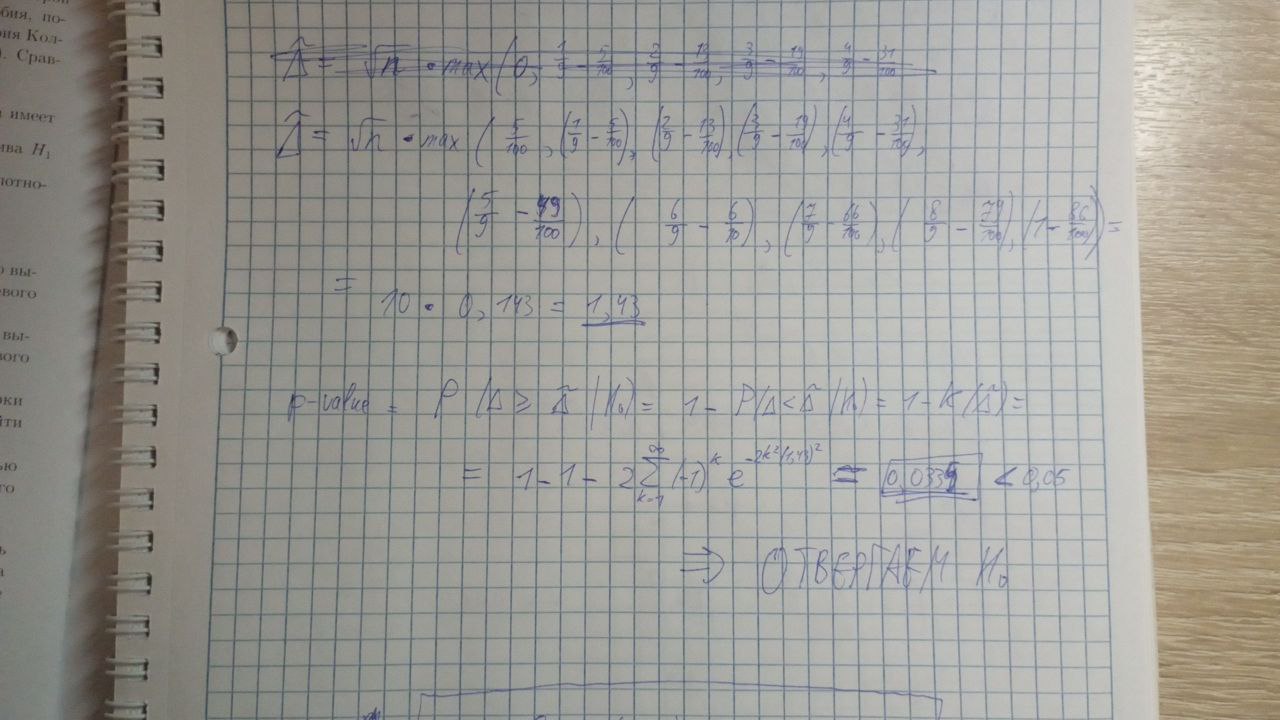 бия, по-
рия Кол-
). Срав-
имеет
ива H₁
лотно-
о вы-
евого
вы-
вого
рки
йти
ью
го
ь
а
Δ̂ = √n · max(0, 1/9 - 5/100, 2/9 - 19/100, 3/9 - 19/100, 4/9 - 31/100
Δ̂ = √n · max ( 5/100, (1/9 - 5/100), (2/9 - 13/100), (3/9 - 19/100), (4/9 - 31/100),
(5/9 - 49/100), ( 6/9 - 6/10), (7/9 - 66/100), ( 8/9 - 79/100), (1 - 86/100)) =
= 10 · 0,143 = 1,43
p-value = P (Δ ≥ Δ̂ | H₀) = 1 - P(Δ < Δ̂ | H₀) = 1 - K(Δ̂) =
= 1 - 1 - 2 ∑_{k=1}^{∞} (-1)^k e^{-2k²(1,43)²} = 0,0335 < 0,05
⇒ ОТВЕРГАЕМ H₀